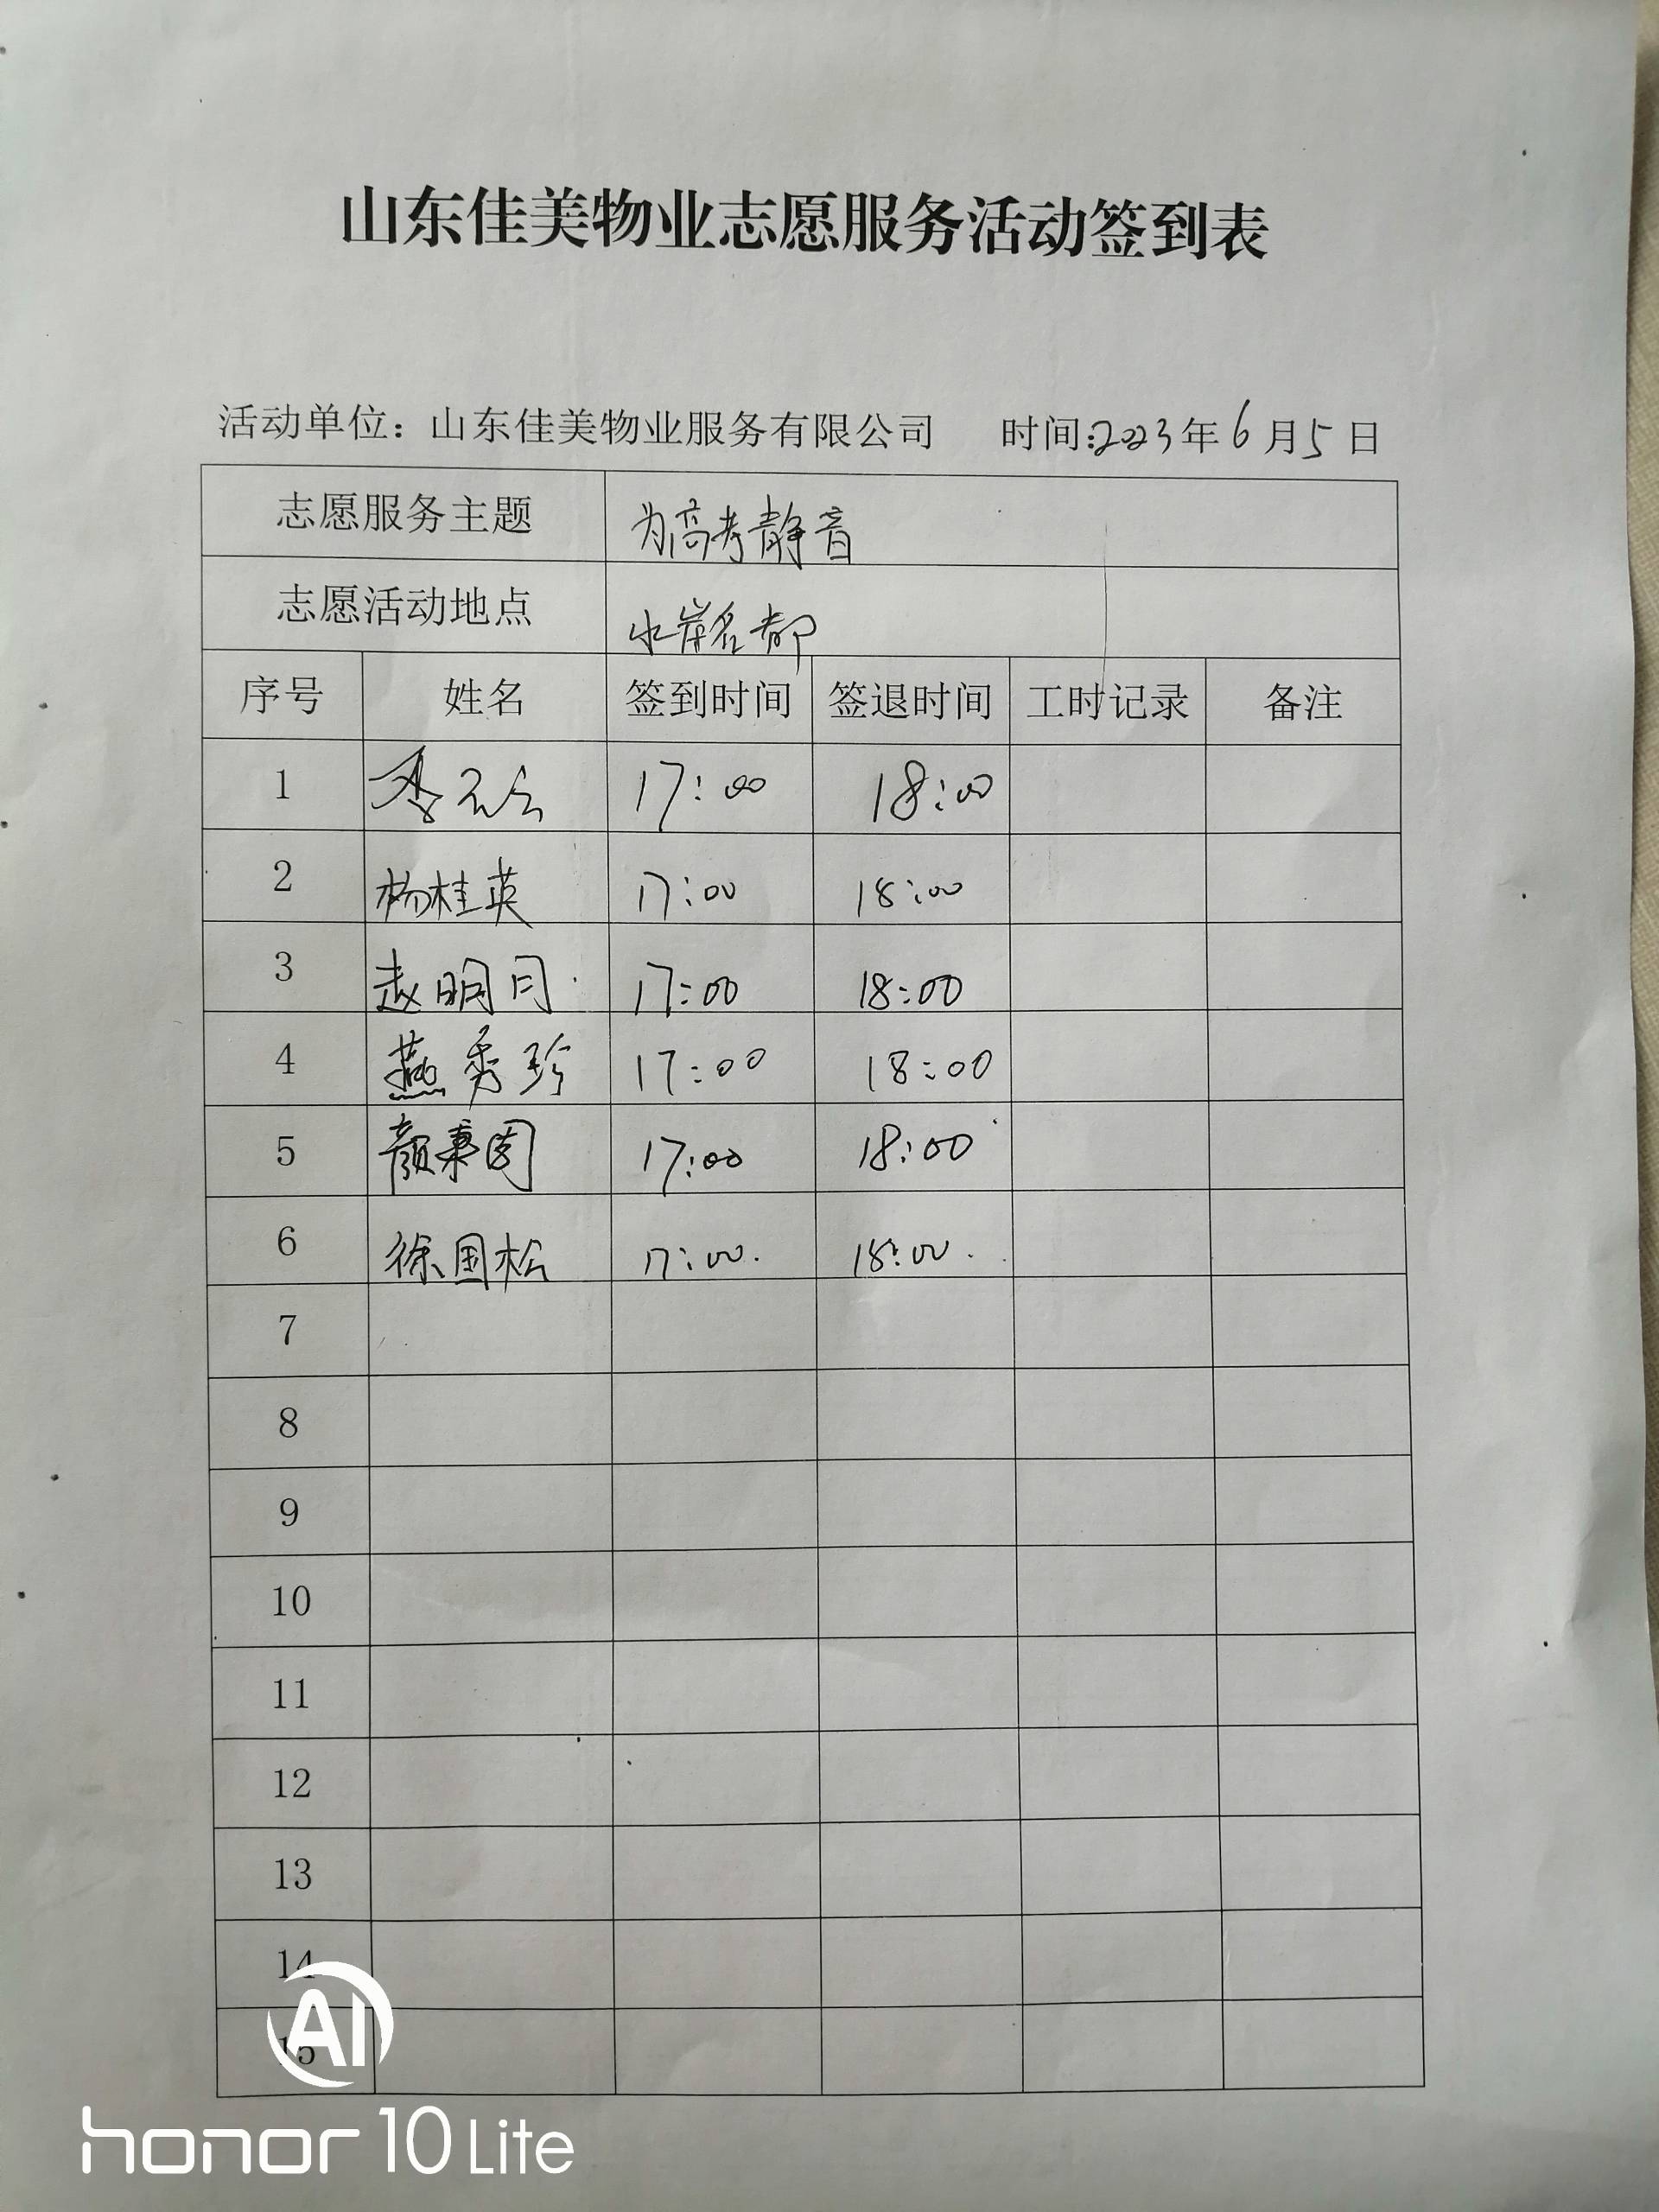 山东佳美物业志愿服务活动签到表
活动单位：山东佳美物业服务有限公司 时间:2023年6月5日
志愿服务主题 为高考静音
志愿活动地点 水岸名都
序号 姓名 签到时间 签退时间 工时记录 备注
1 17:00 18:00
2 杨桂英 17:00 18:00
3 赵明月 17:00 18:00
4 燕秀珍 17:00 18:00
5 颜秉国 17:00 18:00
6 徐国松 17:00 18:00
7
8
9
10
11
12
13
14
15
AI
honor 10 Lite